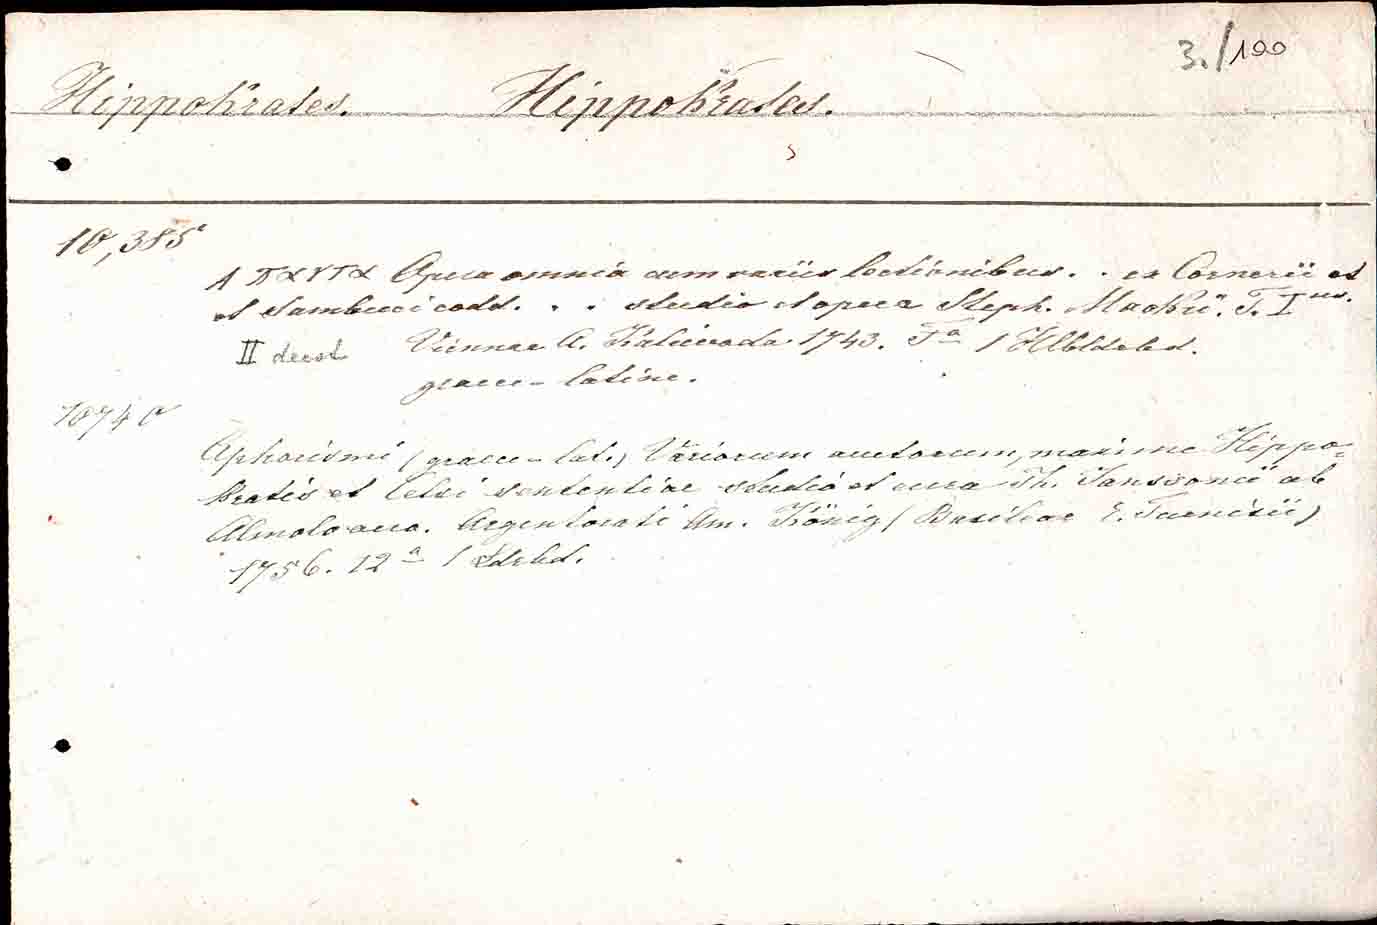 3./100
Hippokrates. Hippokrates.
10,385
Απαντα Opera omnia cum variis lectionibus. . ex Cornerii et
et Sambuci codd. . . studio et opera Steph. Mackii. T. I us.
II deest Viennae A. Kaliwoda 1743. Fa 1 Hlbldrbd.
graece-latine.
10740
Aphorismi (graece-lat.) Variorum auctorum, maxime Hippo=
kratis et Celsi sententiae studio et cura Th. Janssonii ab
Almeloveen. Argentorati Am. König (Basileae E. Turnisii)
1756. 12a 1 Ldrbd.